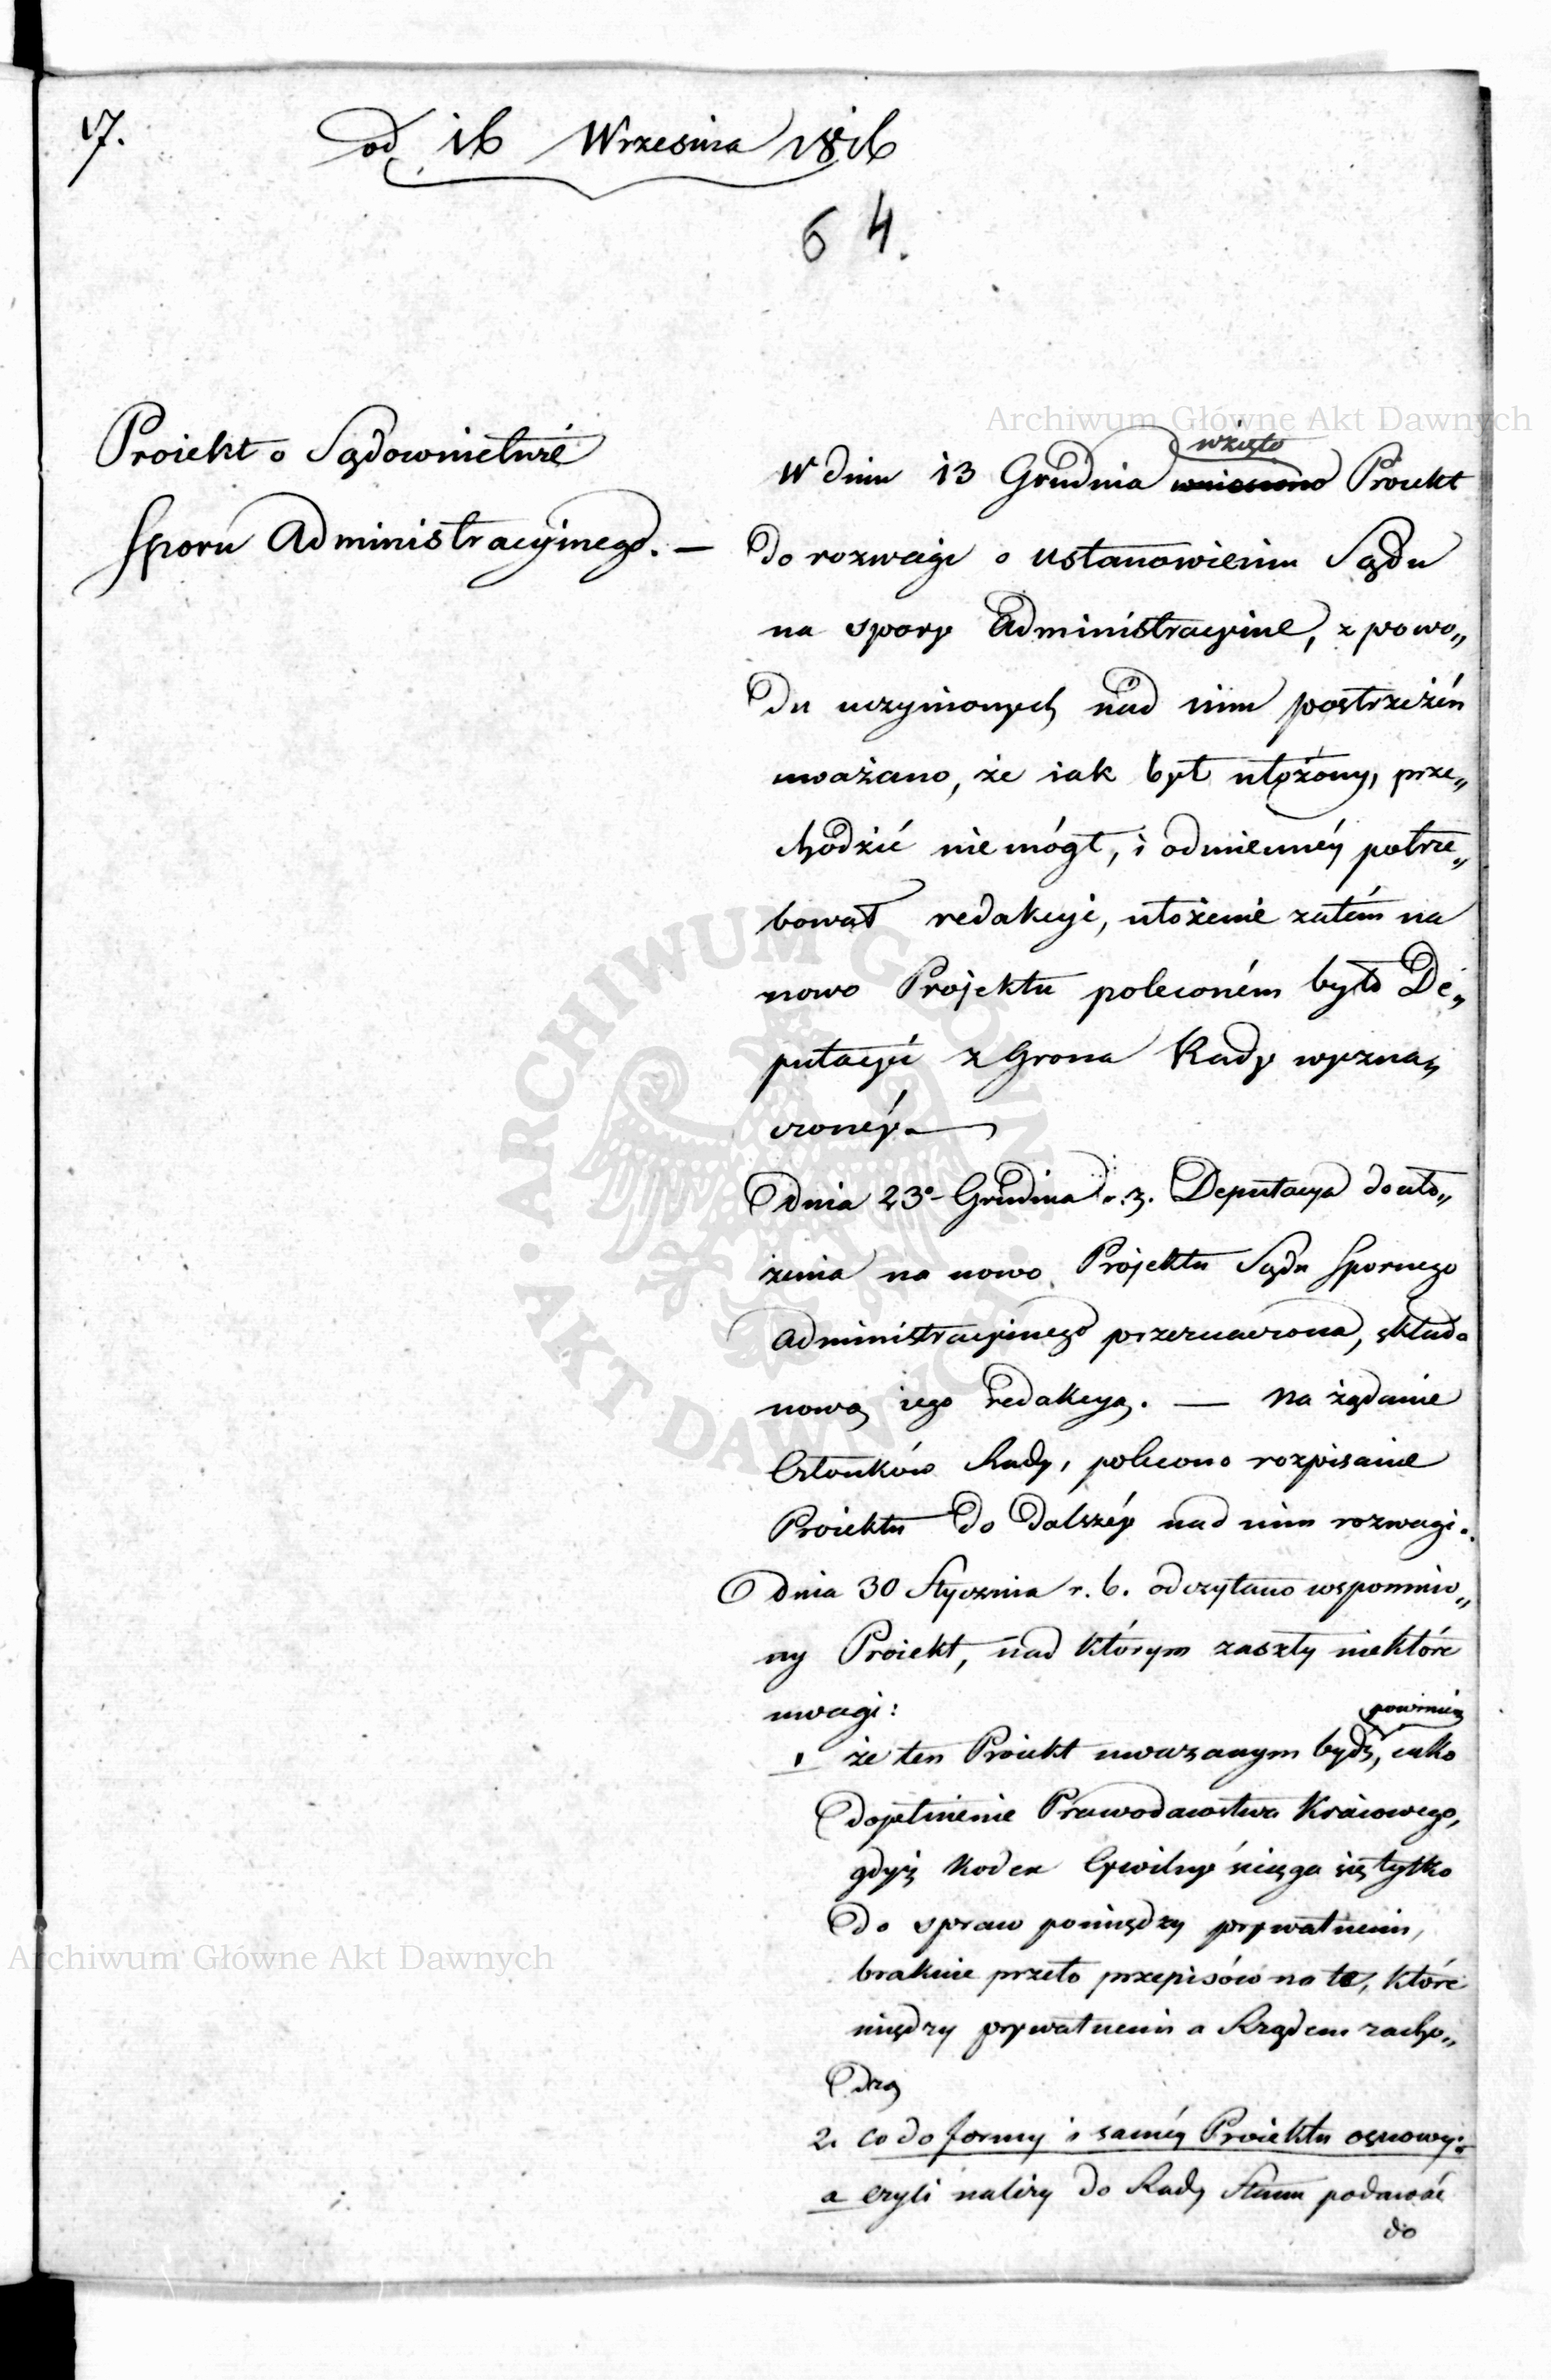 17.
od 16 Września 1816
64.
Archiwum Główne Akt Dawnych
Proiekt o Sądownictwie
Sporu Administracyinego. —
wzięto
W dniu 13 Grudnia wniesiono Proiekt
do rozwagi o ustanowieniu Sądu
na spory Administracyine, z powo„
du uczynionych nad nim postrzeżeń
uważano, że iak był ułożony, prze„
chodzić nie mógł, i odmiennéy potrze„
bował redakcyi, ułożenie zatém na
nowo Projektu poleconém było De„
putacyi z Grona Rady wyzna„
czonéy. —
Dnia 23º Grudnia r. z. Deputacya do uło„
żenia na nowo Projektu Sądu Spornego
Administracyinego przeznaczona, składa
nową iego redakcyą. — Na żądanie
Członków Rady, polecono rozpisanie
Proiektu do dalszéy nad nim rozwagi.
Dnia 30 Stycznia r. b. odczytano wspomnio„
ny Proiekt, nad którym zaszły niektóre
uwagi:
powinien
1 że ten Proiekt uważanym bydź, iako
dopełnienie Prawodawstwa Kraiowego,
gdyż Kodex Cywilny ściąga się tylko
do spraw pomiędzy prywatnemi,
braknie przeto przepisów na te, które
między prywatnemi a Rządem zacho„
dzą
2. co do formy i saméy Proiektu osnowy:
a czyli należy do Rady Stanu podawać
do
Archiwum Główne Akt Dawnych
ARCHIWUM GŁÓWNE
AKT DAWNYCH